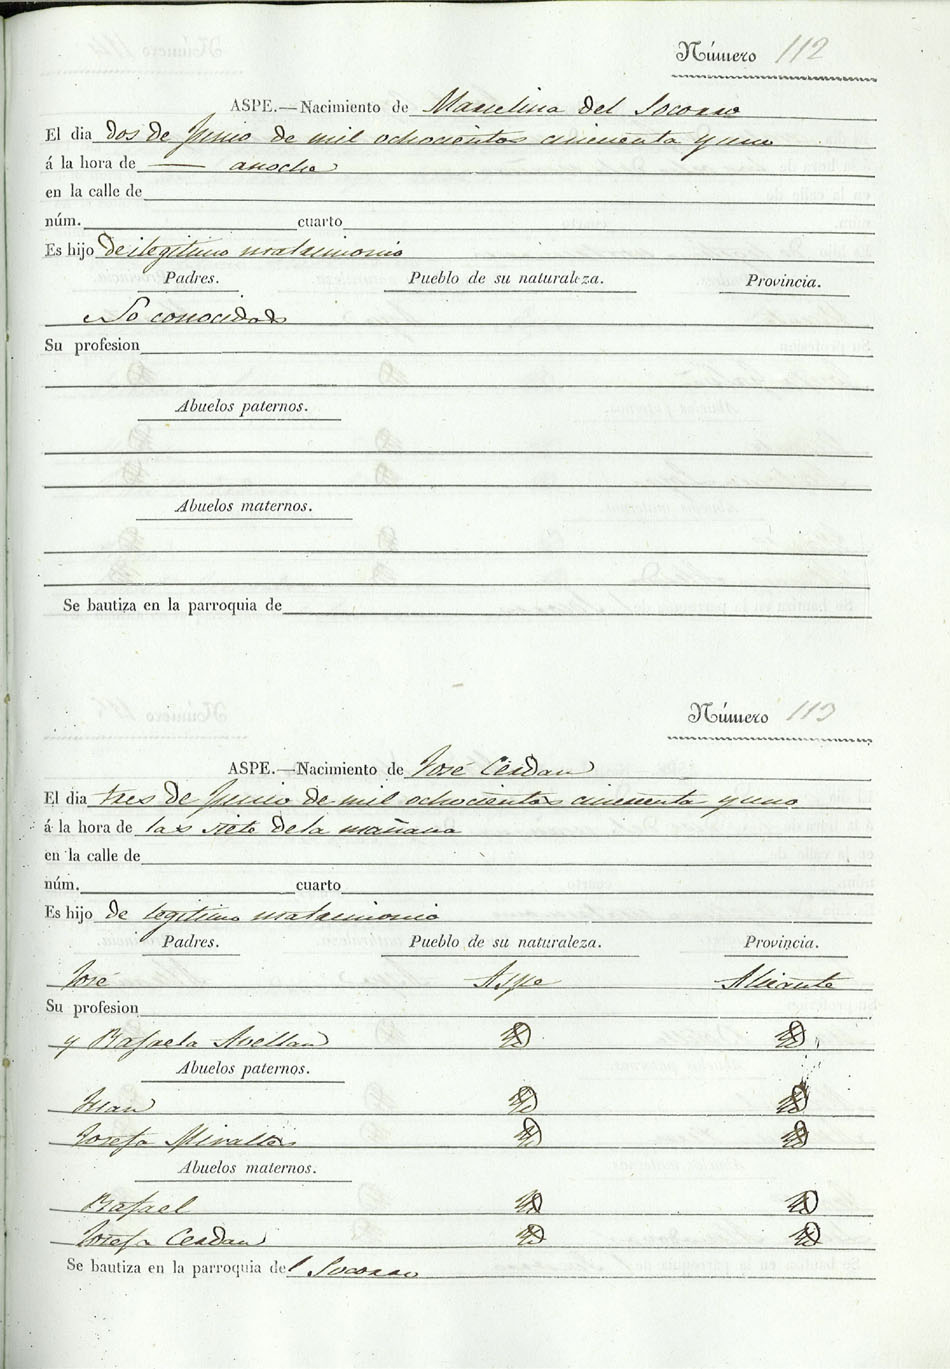 Número 112
ASPE.—Nacimiento de Marcelina del Socorro
El dia dos de Junio de mil ochocientos cincuenta y uno
á la hora de — anoche
en la calle de
núm. cuarto
Es hijo de ilegitimo matrimonio
Padres. Pueblo de su naturaleza. Provincia.
No conocidos
Su profesion
Abuelos paternos.
Abuelos maternos.
Se bautiza en la parroquia de
Número 113
ASPE.—Nacimiento de José Cerdan
El dia tres de Junio de mil ochocientos cincuenta y uno
á la hora de las siete de la mañana
en la calle de
núm. cuarto
Es hijo de legitimo matrimonio
Padres. Pueblo de su naturaleza. Provincia.
José Aspe Alicante
Su profesion
y Rafaela Avellan Yd Yd
Abuelos paternos.
Juan Yd Yd
Josefa Miralles Yd Yd
Abuelos maternos.
Rafael Yd Yd
Josefa Cerdan Yd Yd
Se bautiza en la parroquia del Socorro